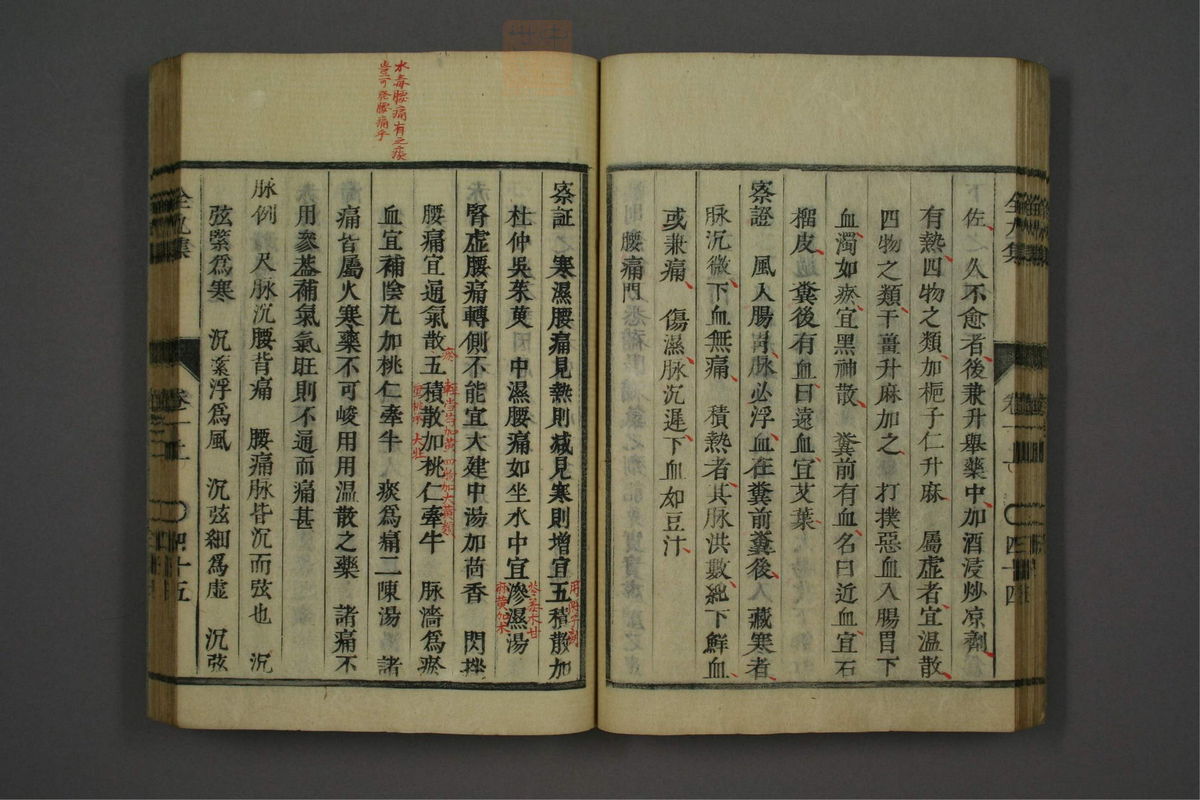 下佐久不愈者後兼升舉藥中加酒浸炒凉劑
有熱四物之類加梔子仁升麻　屬虛者宜温散
四物之類干薑升麻加之　打撲惡血入腸胃下
血濁如瘀宜黑神散　糞前有血名曰近血宜石
榴皮糞後有血曰遠血宜艾葉
察證　風入腸胃脉必浮血在糞前糞後入藏寒者
脉沉微下血無痛　積熱者其脉洪數純下鮮血
或兼痛　傷濕脉沉遲下血如豆汁
腰痛門
全九集
四十四
水毒腰痛有之痰
豈可發腰痛乎
察証　寒濕腰痛見熱則减見寒則增宜五積散加
杜仲吳茱萸　中濕腰痛如坐水中宜滲濕湯
腎虛腰痛轉側不能宜大建中湯加茴香　閃挫
腰痛宜通氣散五積散加桃仁牽牛　脉濇爲瘀
血宜補陰丸加桃仁牽牛　痰爲痛二陳湯　諸
痛皆屬火寒藥不可峻用用温散之藥　諸痛不
用參蓍補氣氣旺則不通而痛甚
脉例　尺脉沉腰背痛　腰痛脉皆沉而弦也　沉
弦緊爲寒　沉濡浮爲風　沉弦細爲虛　沉弦
全九集
卷一上
四十五